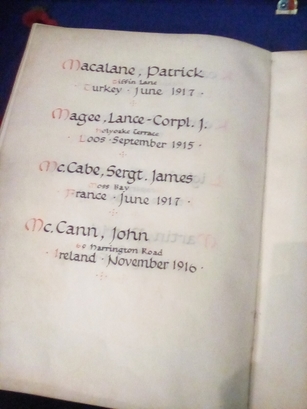 Macalane, Patrick
Lane
Turkey · June 1917 ·
Magee, Lance-Corpl. J.
Holyoake Terrace
Loos · September 1915 ·
Mc.Cabe, Sergt. James
Moss Bay
France · June 1917 ·
Mc.Cann, John
Harrington Road
Ireland · November 1916 ·